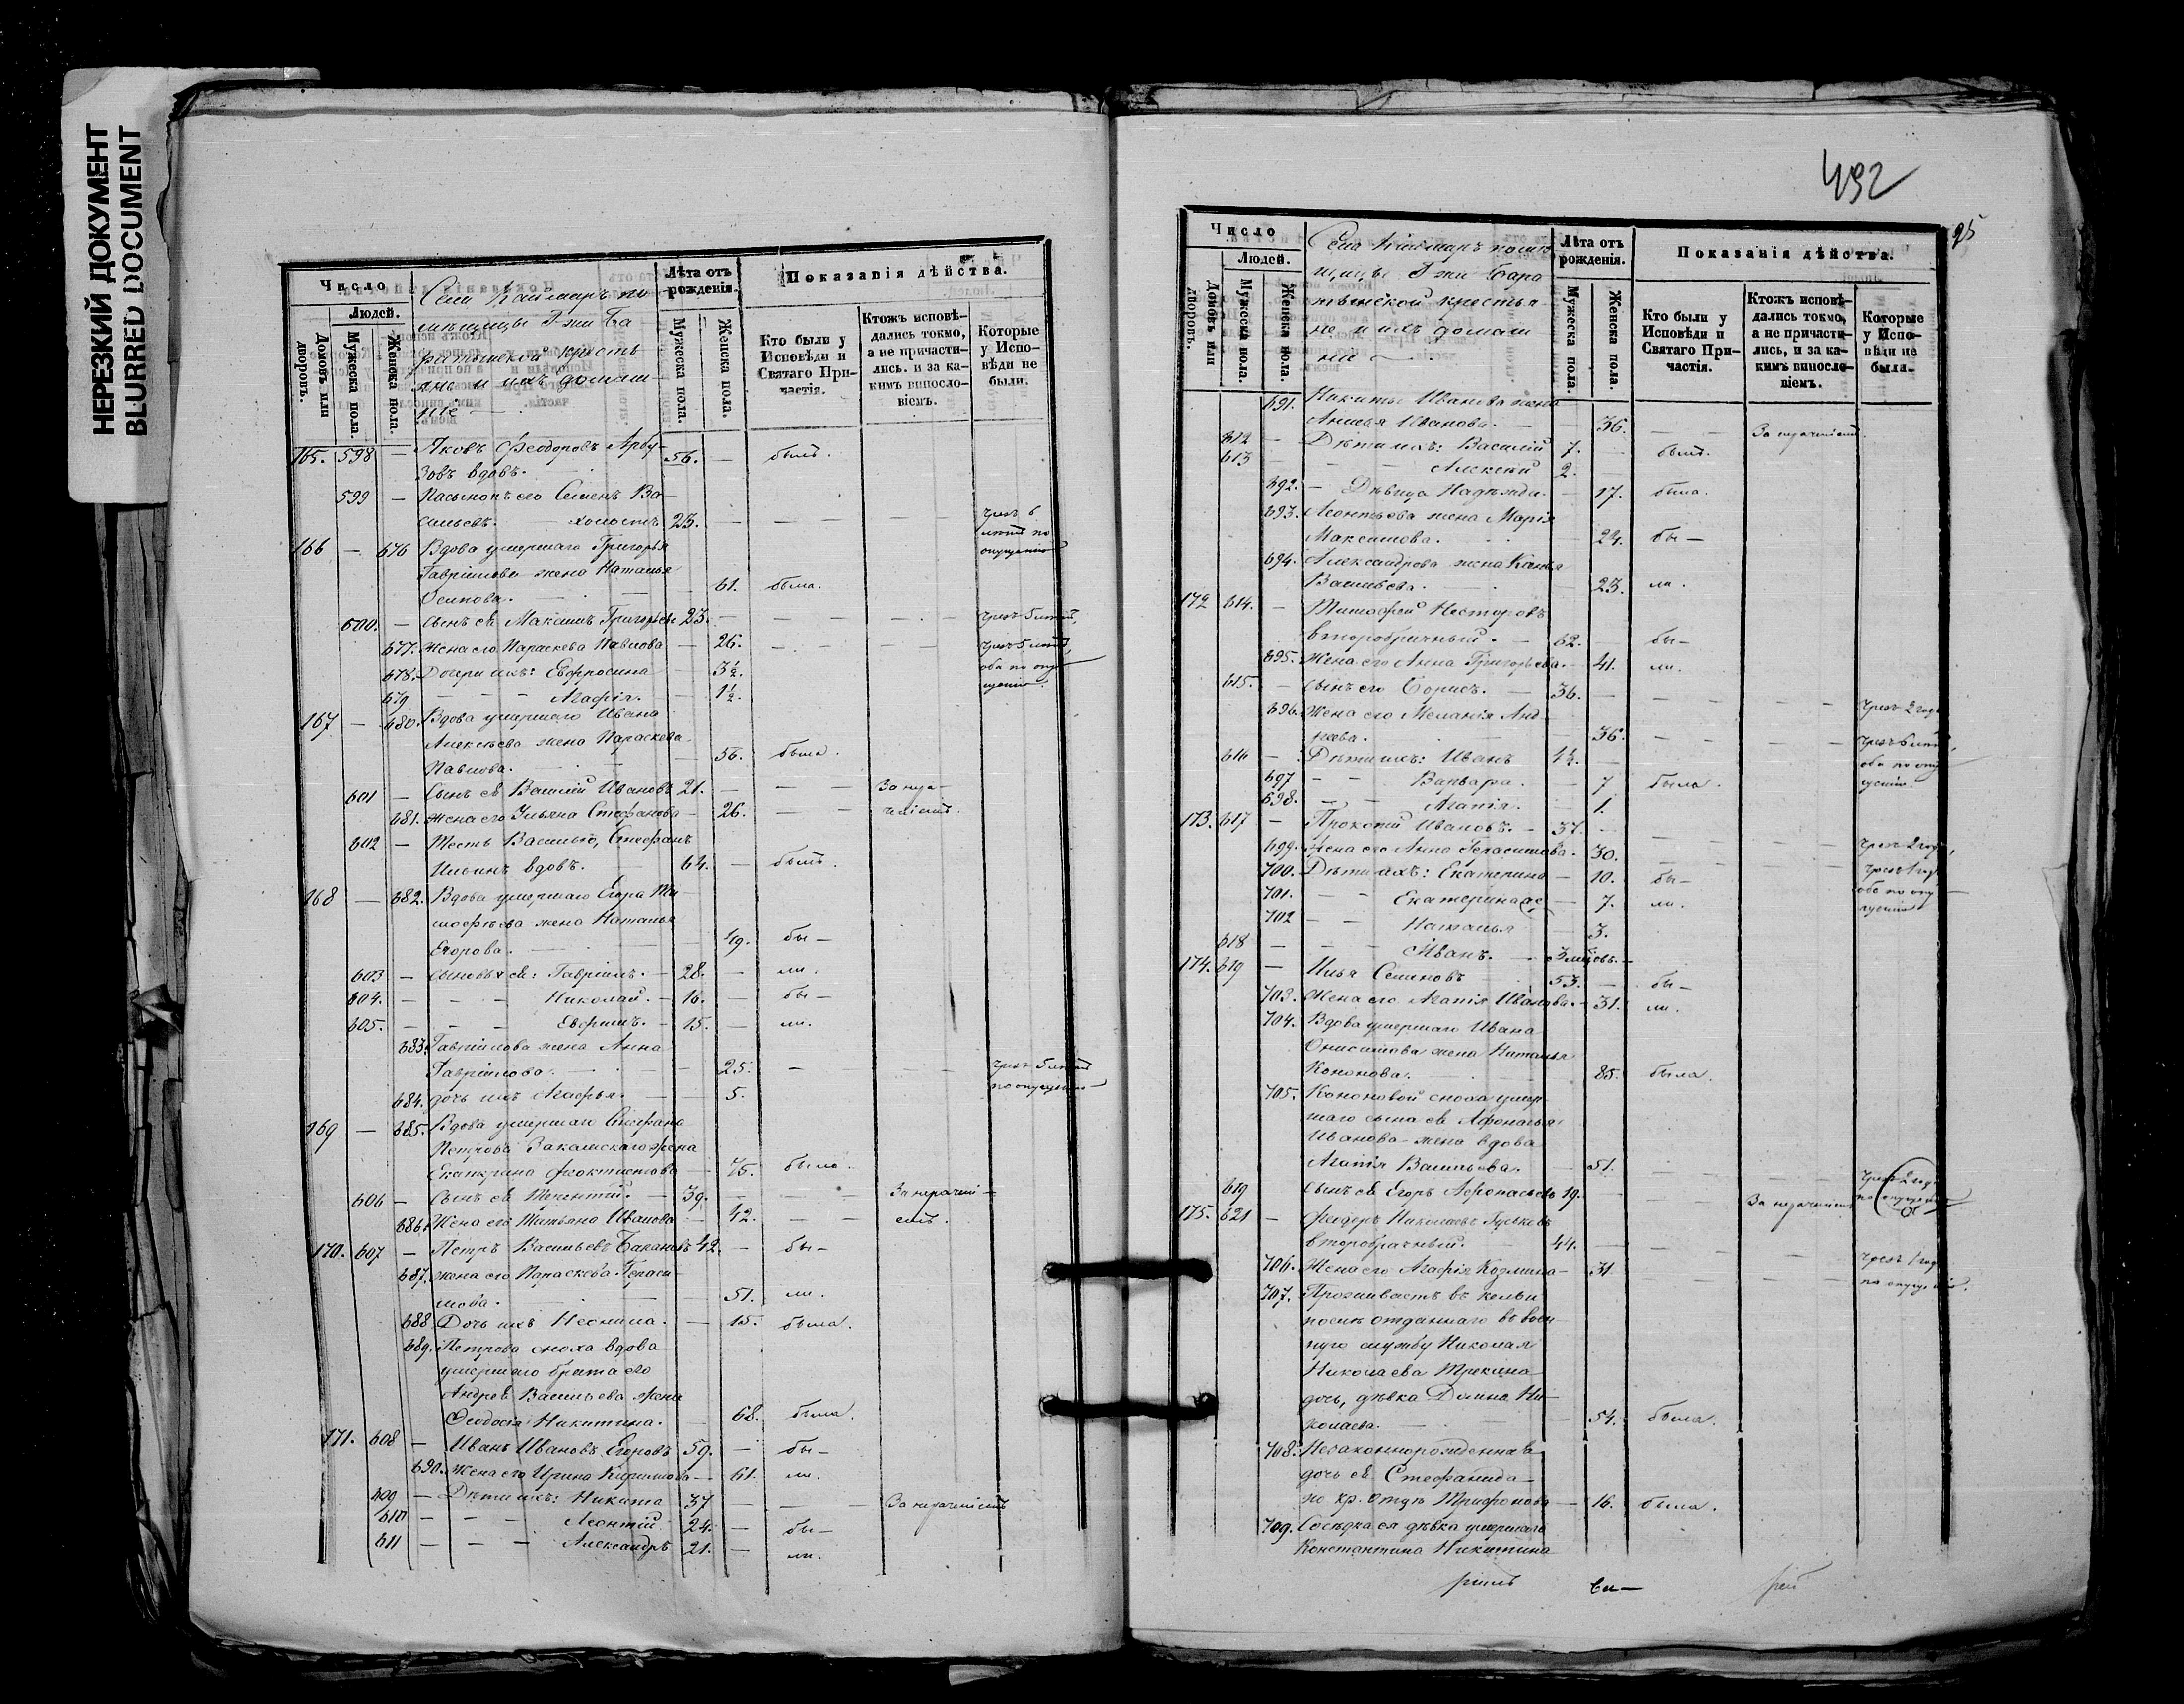 НЕРЕЗКИЙ ДОКУМЕНТ
BLURRED DOCUMENT
Число
Людей.
Домовъ или дворовъ.
Мужеска пола.
Женска пола.
Села Каймаръ по-
мѣщицы Г-жи Ба
ратынской кресть
яне и ихъ домаш-
ніе
Лѣта отъ рожденія.
Мужеска пола.
Женска пола.
Показанія дѣйства.
Кто были у Исповѣди и Святаго При-частія.
Ктожъ исповѣ-дались токмо, а не причасти-лись. и за ка-кимъ винosло-віемъ.
Которые у Испо-вѣди не были.
165. 598 — Яковъ Ѳеодоровъ Арбу-
зовъ вдовъ. 56. — былъ.
599 — Пасынокъ его Семенъ Ва-
сильевъ. холостъ. 25. — чрезъ 6
лѣтъ по
опущенію
166 — 676 Вдова умершаго Григорья
Гавріилова жена Наталья
Осипова. — 61. была.
600. — Сынъ ея Максимъ Григорьевъ 23. — чрезъ 5 лѣтъ,
677. Жена его Параскева Павлова — 26. чрезъ 5 лѣтъ,
678. Дочери ихъ: Евфросина — 3½. оба по опу
679 — Агафія. — 1½. щенію.
167 — 680. Вдова умершаго Ивана
Алексѣева жена Параскева
Павлова. — 56. была.
601 — Сынъ ея Василій Ивановъ 21. — За нера-
681. Жена его Ульяна Стефанова — 26. — чніемъ.
602 — Тесть Василью, Стефанъ
Ильинъ вдовъ. 64. — былъ.
168 — 682. Вдова умершаго Егора Ти
мофѣева жена Наталья
Егорова. — 49. бы —
603 — Сыновья ея: Гавріилъ. — 28. — ли.
604. — Николай. — 16. — бы —
605. — Евфимъ. — 15. — ли.
683. Гавріилова жена Анна
Гавріилова. — 25. — чрезъ 5 лѣтъ
684. дочь ихъ Агафья. — 5. по опущенію
169 — 685. Вдова умершаго Стефана
Петрова Закамскаго жена
Екатерина Ѳеоктистова — 75. была.
606 — Сынъ ея Терентій. — 39. — За нерачені —
686. Жена его Татьяна Иванова — 42. — емъ.
170. 607 — Петръ Васильевъ Бакановъ 42. — бы —
687. жена его Параскева Гераси-
мова. — 51. ли.
688 Дочь ихъ Неонила. — 15. была.
689. Петрова сноха вдова
умершаго брата его
Андрея Васильева жена
Ѳеодосія Никитина. — 68. была.
171. 608 — Иванъ Ивановъ Егоровъ 59. — бы —
690. Жена его Ирина Кириллова — 61. ли.
609 — Дѣти ихъ: Никита 37 — За нераченіемъ
610 — Леонтій 24. — бы —
611 — Александръ 21. — ли.
492
95
Число
Людей.
Домовъ или дворовъ.
Мужеска пола.
Женска пола.
Села Каймаръ помѣ
щицы Г-жи Бара
тынской крестья
не и ихъ домаш
ніе —
Лѣта отъ рожденія.
Мужеска пола.
Женска пола.
Показанія дѣйства.
Кто были у Исповѣди и Святаго При-частія.
Ктожъ исповѣ-дались токмо, а не причасти-лись, и за ка-кимъ винослo-віемъ.
Которые у Испо-вѣди не были.
691. Никиты Иванова жена
Анисья Иванова. — 36. — За нераченіемъ.
612 — Дѣти ихъ: Василій 7. — былъ.
613 — Алексѣй 2. —
692. — Дѣвица Надежда. — 17. была.
693. Леонтьева жена Марія
Максимова. — 24. бы —
694. Александрова жена
Васильева. — 23. ли.
172 614. — Тимофей Несторовъ
второбрачный. — 62. — бы —
695. Жена его Анна Григорьева. — 41. ли.
615. — Сынъ его Борисъ. — 36. — чрезъ 2 года
696. Жена его Меланія Анд
реева. — 36. — чрезъ 6 лѣтъ,
616 — Дѣти ихъ: Иванъ 4½. — оба по опу
697 — Варвара. — 7 была. щенію.
698. — Агапія. — 1.
173. 617 — Прокопій Ивановъ. — 37. — чрезъ 2 года,
699. Жена его Анна Герасимова. — 30. — чрезъ 1 годъ
700. Дѣти ихъ: Екатерина — 10. бы — оба по опу
701. — Екатерина — 7. ли. щенію
702 — Наталья — 3.
618 — Иванъ. — 3 мѣсяц. —
174. 619 — Илья Семеновъ 53. — бы —
703. Жена его Агапія Иванова. — 31. ли.
704. Вдова умершаго Ивана
Онисимова жена Наталья
Кононова. — 85. была.
705. Кононовой сноха умер
шаго сына ея Афонасья
Иванова жена вдова
Агапія Васильева. — 51. — чрезъ 2 года
619 Сынъ ея Егоръ Афонасьевъ 19. — За нераченіемъ по опущенію
175. 621 — Ѳеодоръ Николаевъ Гуськовъ
второбрачный. 44. — чрезъ 1 годъ
706. Жена его Агафія Козмина — 31 — по опущенію.
707. Проживаетъ въ кельи
послѣ отданнаго въ воен
ную службу Николая
Николаева Трекина
дочь, дѣвка Домна Ни-
колаева. — 54. была.
708. Незаконнорожденная
дочь ея Стефанида
по кр. отцу Трифонова — 16. была.
709. Сосѣдка ея дѣвка умершаго
Константина Никитина